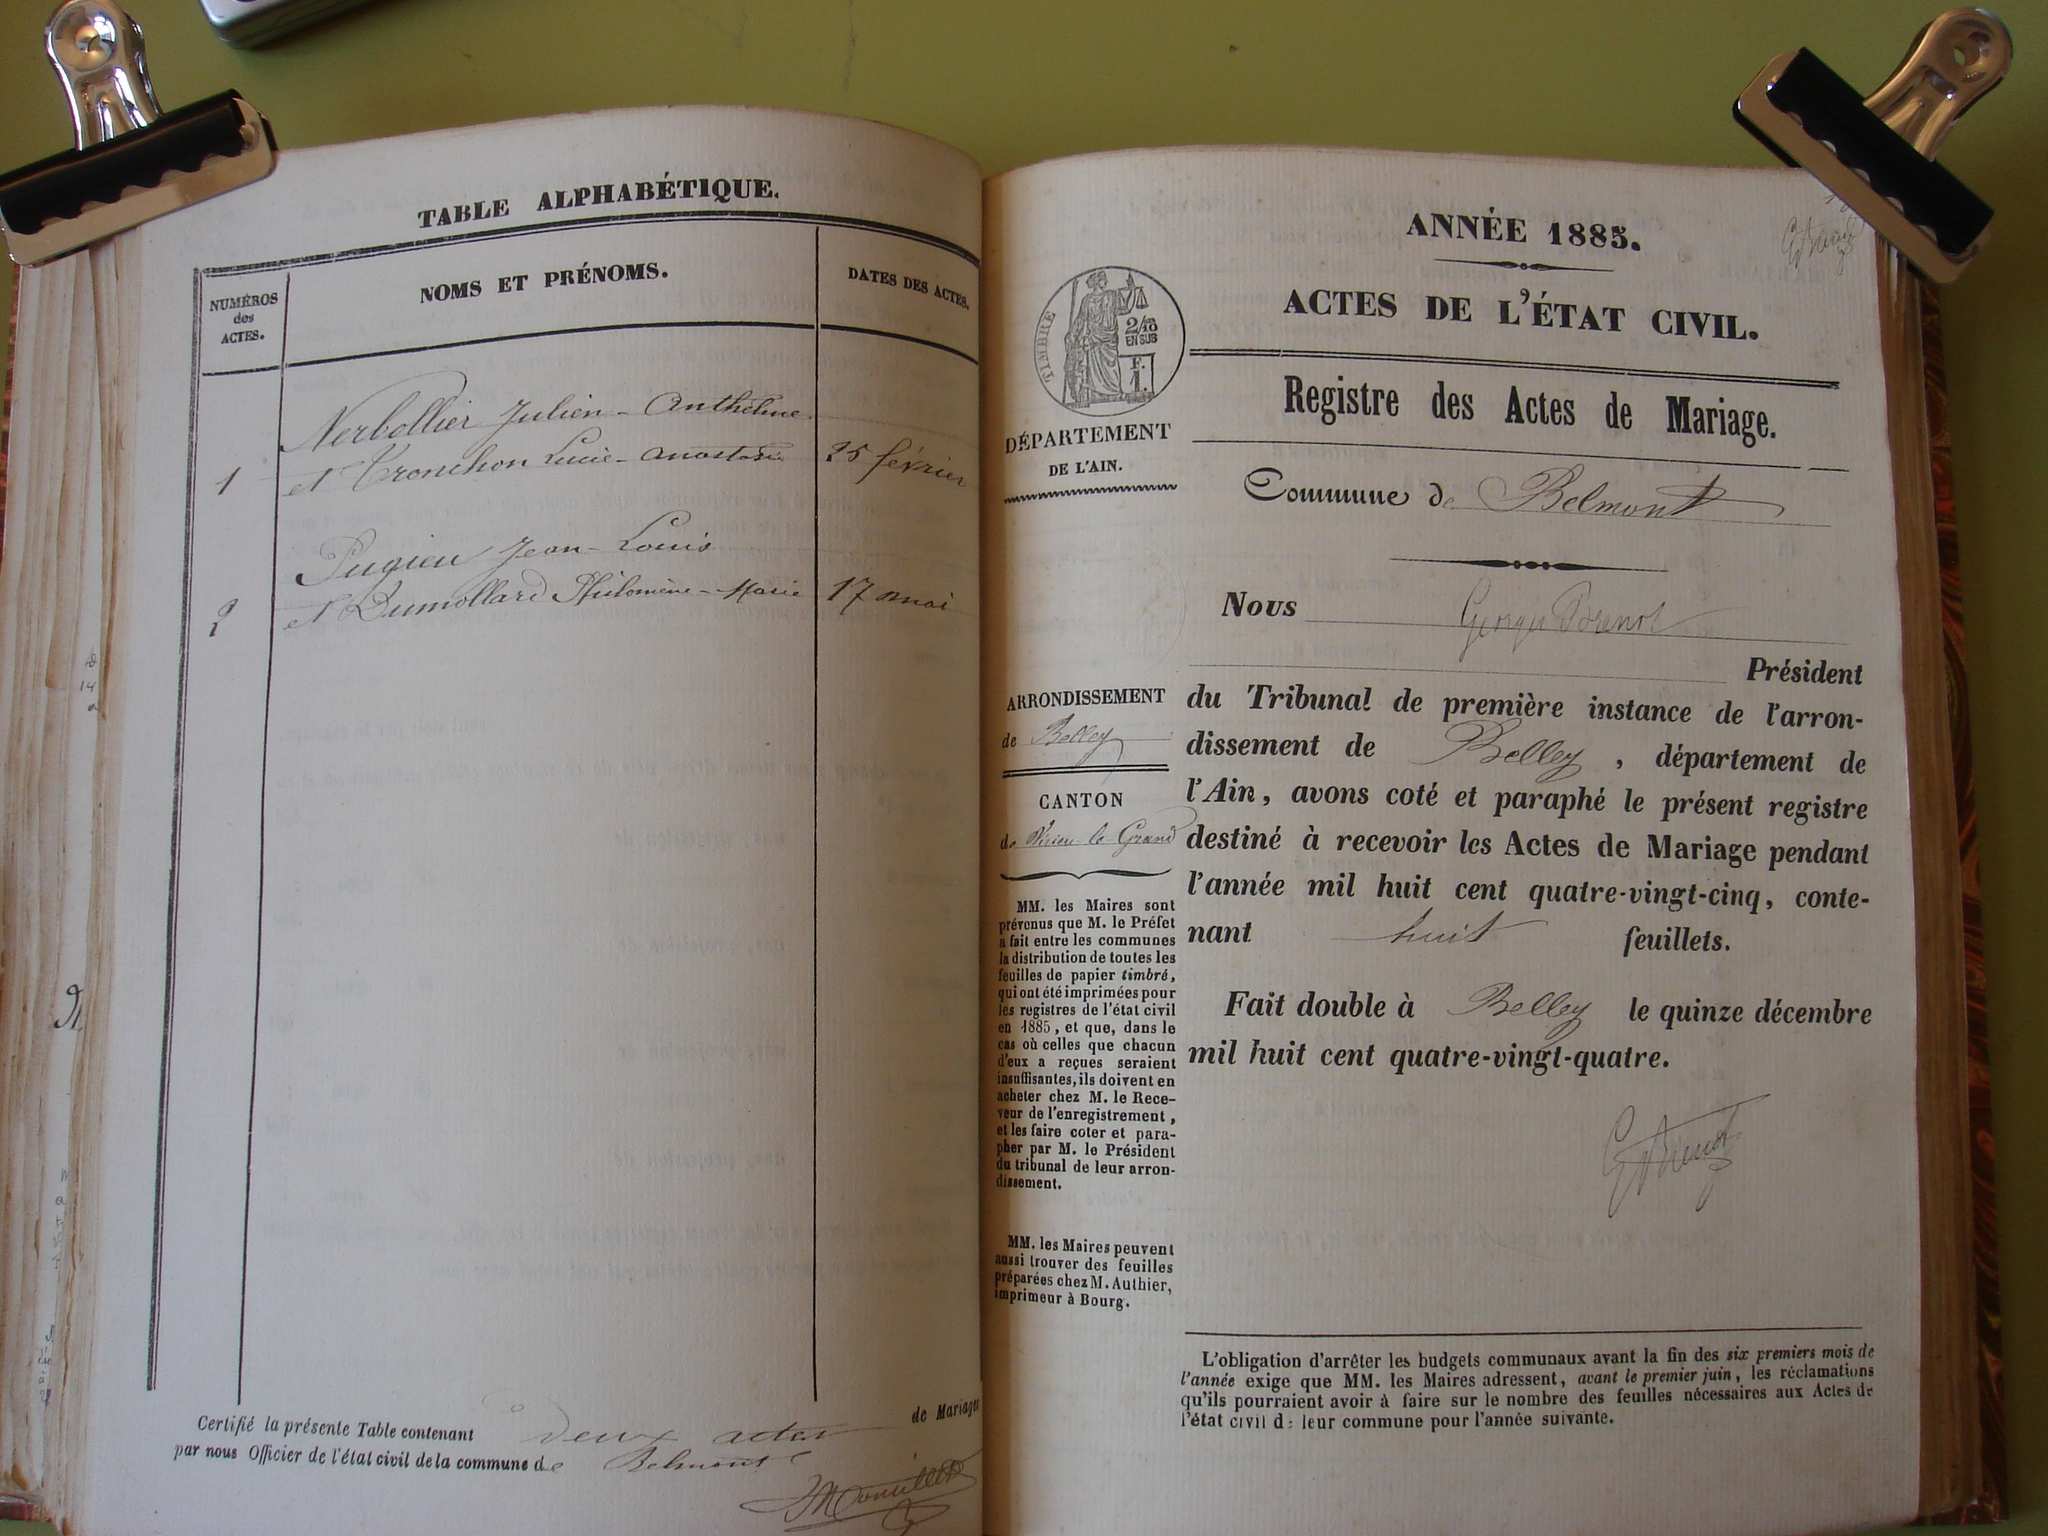 TABLE ALPHABÉTIQUE.
NUMÉROS
des
ACTES.
NOMS ET PRÉNOMS.
DATES DES ACTES.
Nerbollier Julien-Anthelme
1 et Tronchon Lucie-Anastasie 25 février
Pugieu Jean-Louis
2 et Dumollard Philomène-Marie 17 mai
Certifié la présente Table contenant deux actes de Mariages
par nous Officier de l'état civil de la commune de Belmont
ANNÉE 1885.
ACTES DE L'ÉTAT CIVIL.
TIMBRE
2/10
EN SUS
F.
1.
DÉPARTEMENT
DE L'AIN.
Registre des Actes de Mariage.
Commune de Belmont
Nous Georges
Président
du Tribunal de première instance de l'arron-
dissement de Belley, département de
l'Ain, avons coté et paraphé le présent registre
destiné à recevoir les Actes de Mariage pendant
l'année mil huit cent quatre-vingt-cinq, conte-
nant huit feuillets.
Fait double à Belley le quinze décembre
mil huit cent quatre-vingt-quatre.
ARRONDISSEMENT
de Belley
CANTON
de Virieu-le-Grand
MM. les Maires sont
prévenus que M. le Préfet
a fait entre les communes
la distribution de toutes les
feuilles de papier timbré,
qui ont été imprimées pour
les registres de l'état civil
en 1885, et que, dans le
cas où celles que chacun
d'eux a reçues seraient
insuffisantes, ils doivent en
acheter chez M. le Rece-
veur de l'enregistrement,
et les faire coter et para-
pher par M. le Président
du tribunal de leur arron-
dissement.
MM. les Maires peuvent
aussi trouver des feuilles
préparées chez M. Authier,
imprimeur à Bourg.
L'obligation d'arrêter les budgets communaux avant la fin des six premiers mois de
l'année exige que MM. les Maires adressent, avant le premier juin, les réclamations
qu'ils pourraient avoir à faire sur le nombre des feuilles nécessaires aux Actes de
l'état civil de leur commune pour l'année suivante.